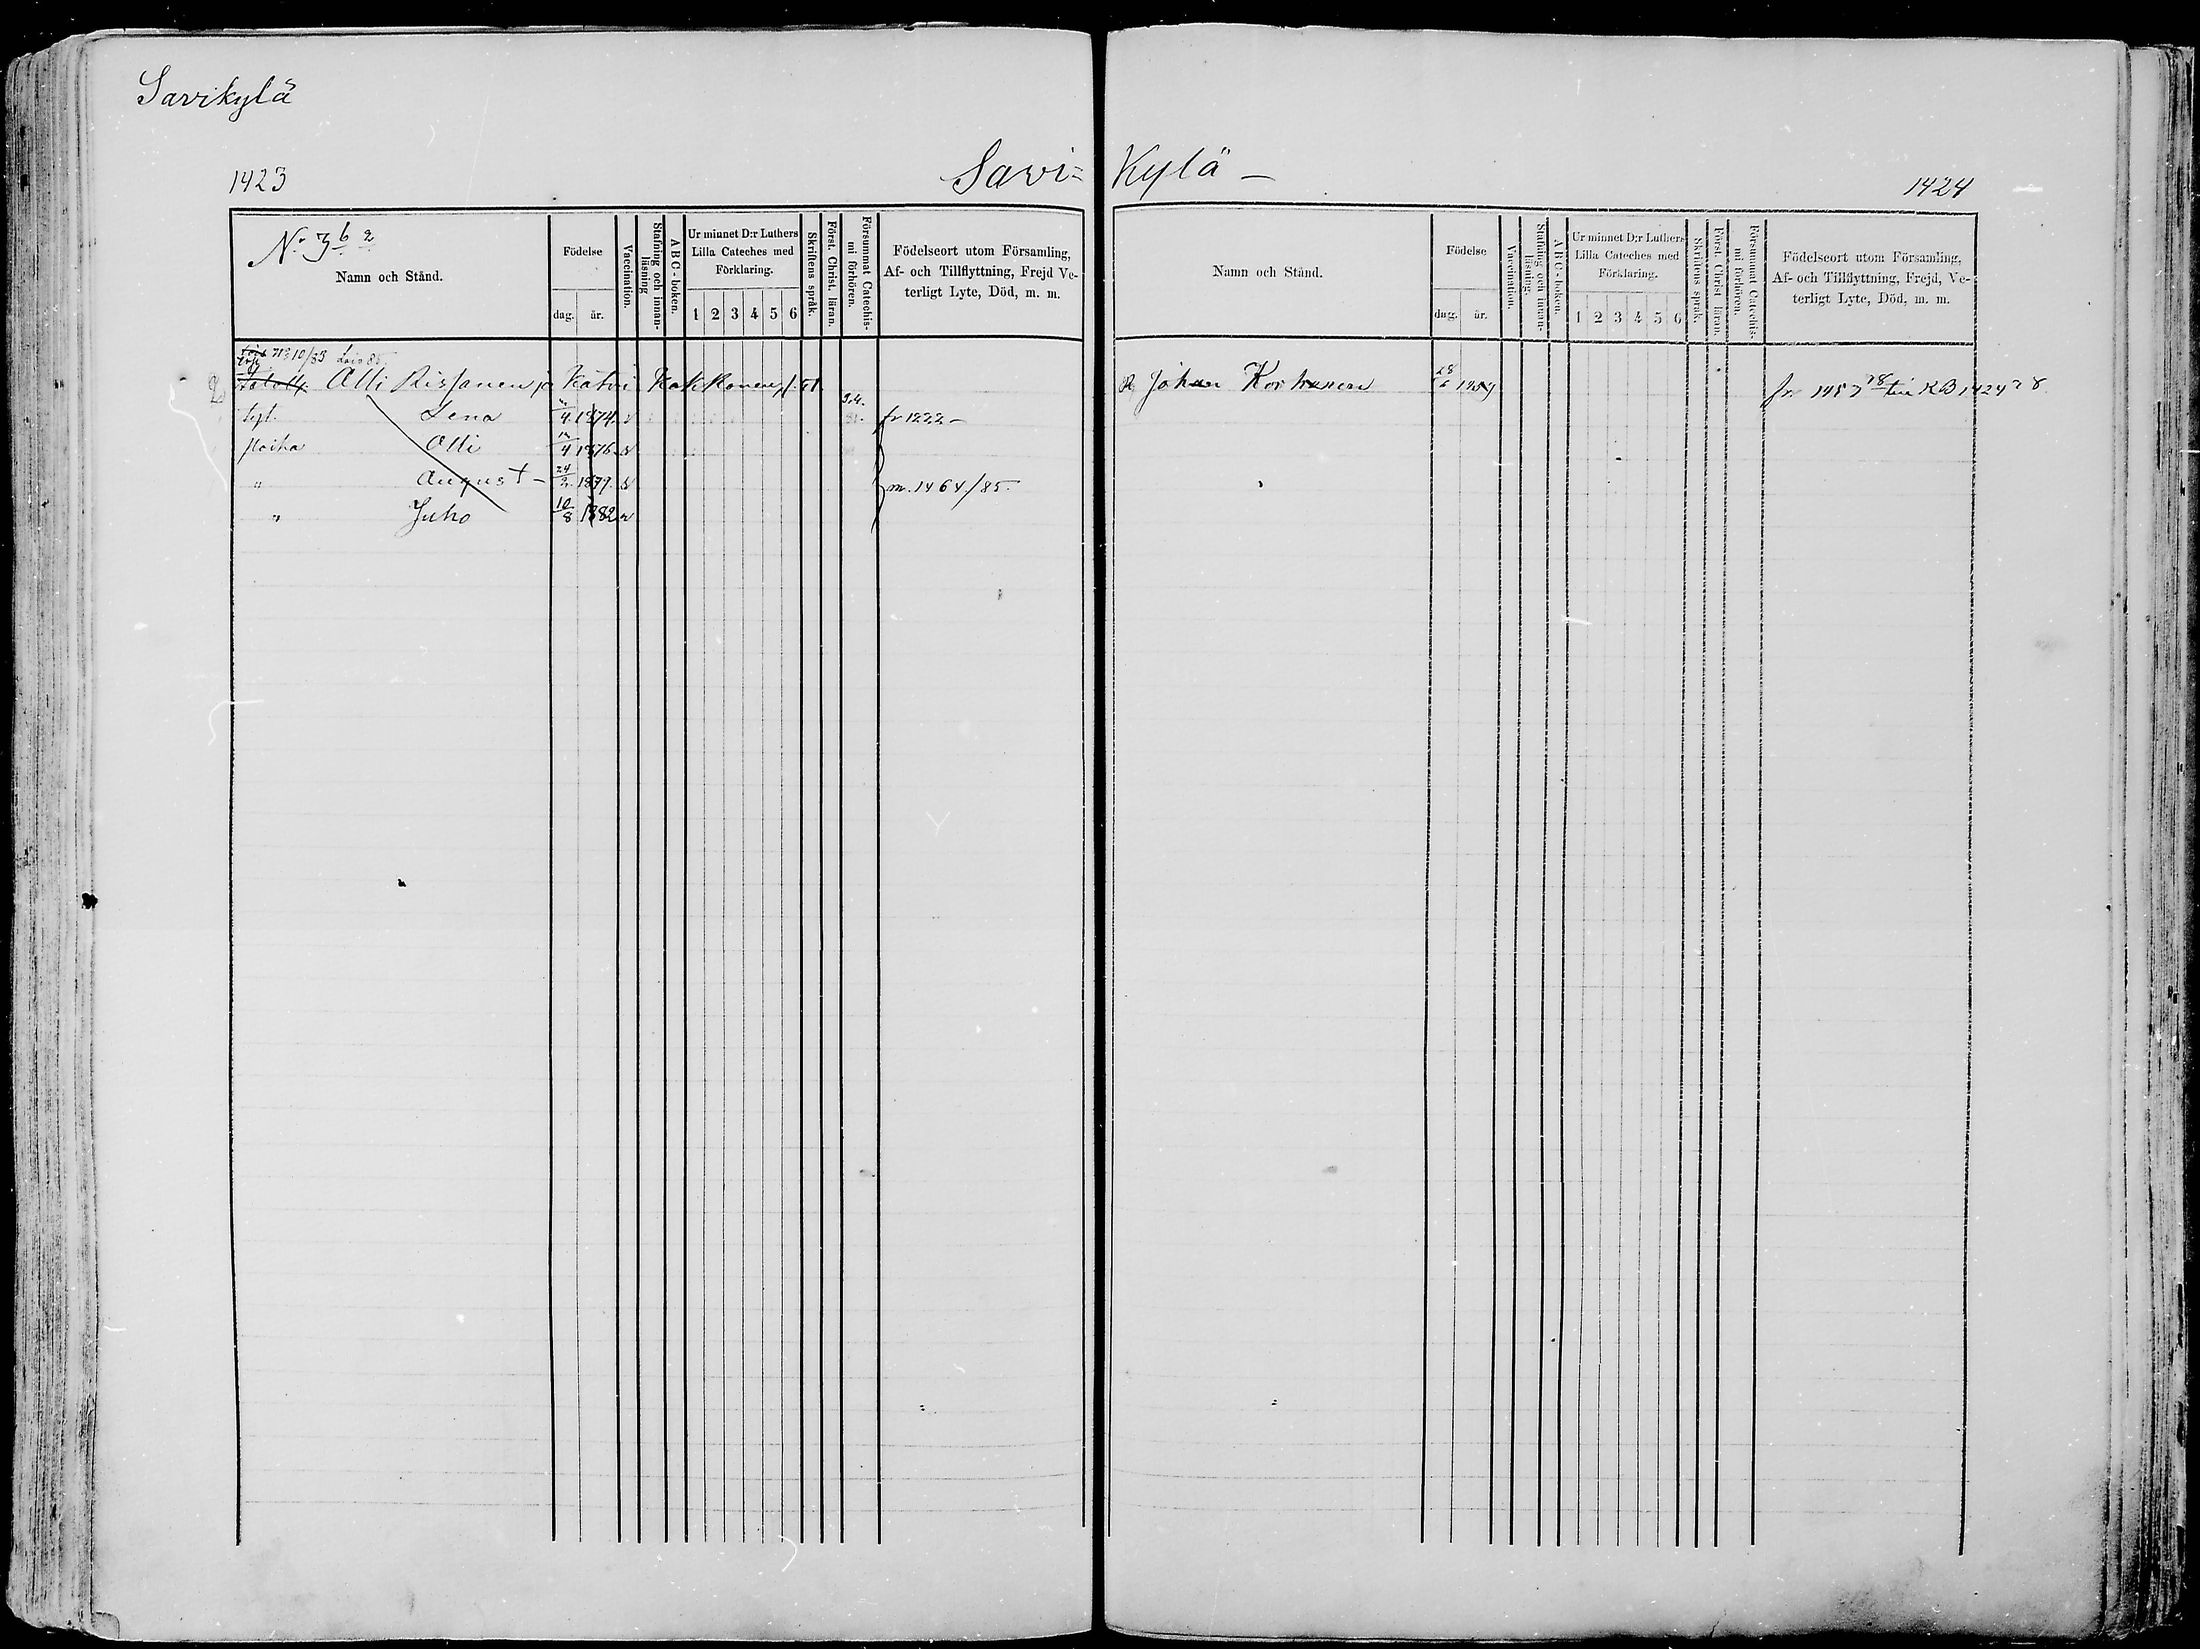 Savikylä
1423
Savi=
N:o 3 b 2
Namn och Stånd.
Födelse
dag.
år.
Vaccination.
Stafning och innan-
läsning
ABC-boken.
Ur minnet D:r Luthers
Lilla Cateches med
Förklaring.
1 2 3 4 5 6
Skriftens språk.
Först. Christ. läran.
Försummat Catechis-
mi förhören.
Födelseort utom Församling,
Af- och Tillflyttning, Frejd Ve-
terligt Lyte, Död, m. m.
10/83
Olli Rissanen ja Katri Kokkonen
Lena 4 1874 fr 1222 –
Poika Olli 4 1876
" August – 24/2 1879 m. 1464/85.
" Juho 10/8 1882
Kylä –
1424
Namn och Stånd.
Födelse
dag.
år.
Vaccination.
Stafning och innan-
läsning.
ABC-boken.
Ur minnet D:r Luthers
Lilla Cateches med
Förklaring.
1 2 3 4 5 6
Skriftens språk.
Först. Christ läran.
Försummat Catechis-
mi förhören.
Födelseort utom Församling,
Af- och Tillflyttning, Frejd, Ve-
terligt Lyte, Död, m. m.
Johan Korhonen 28 fr 1457 KB 1424